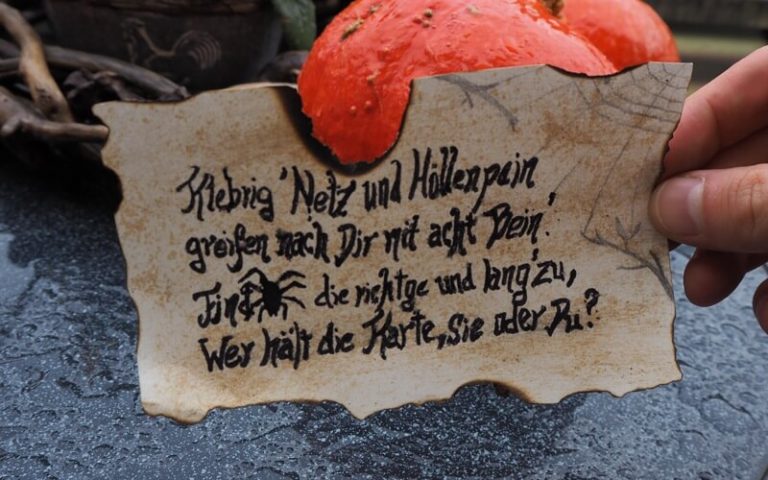 Klebrig' Netz und Höllenpein
greifen nach Dir mit acht Bein'.
Find die richt'ge und lang' zu,
Wer hält die Karte, Sie oder Du?